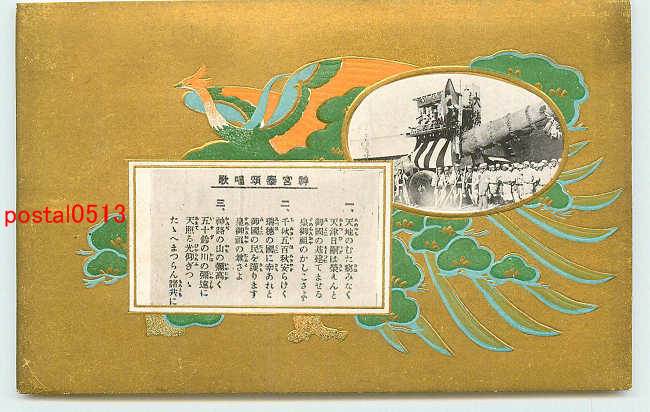 神宮奉頌唱歌
一、
天地のむた窮みなく
天津日嗣は榮えんと
御國の基建てませる
皇御祖のかしこさよ
二、
千秋五百秋安らけく
瑞穗の國に幸あれと
御國の民を護ります
皇御祖の尊さよ
三、
神路の山の彌高く
五十鈴の川の彌遠に
天照る光仰ぎつゝ
たゝへまつらん諸共に
postal0513